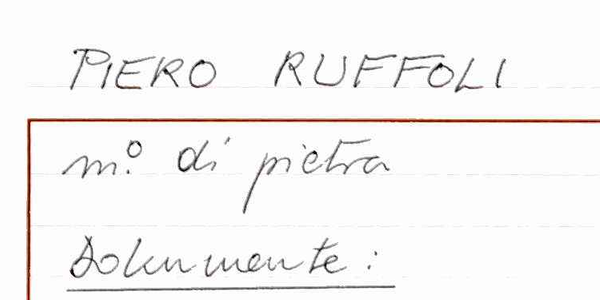 PIERO RUFFOLI
m.º di pietra
Dokumente: